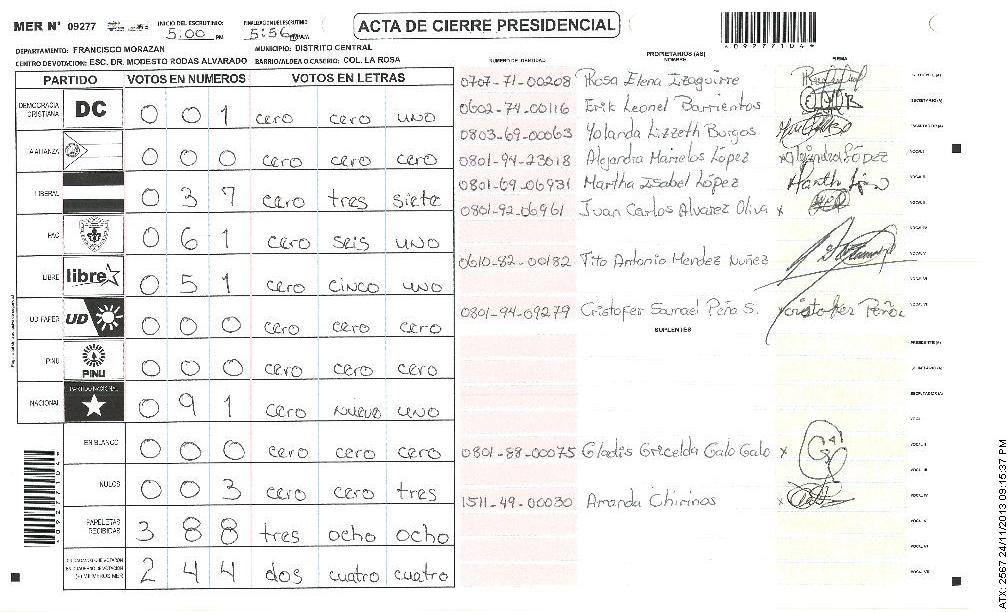 MER Nº 09277
INICIO DEL ESCRUTINIO: 5:00 PM
FINALIZACION DEL ESCRUTINIO: 5:56
ACTA DE CIERRE PRESIDENCIAL
DEPARTAMENTO: FRANCISCO MORAZAN
MUNICIPIO: DISTRITO CENTRAL
CENTRO DE VOTACION: ESC. DR. MODESTO RODAS ALVARADO
BARRIO/ALDEA O CASERIO: COL. LA ROSA
PARTIDO VOTOS EN NUMEROS VOTOS EN LETRAS
DEMOCRACIA CRISTIANA DC 0 0 1 cero cero uno
LA ALIANZA 0 0 0 cero cero cero
LIBERAL 0 3 7 cero tres siete
PAC 0 6 1 cero seis uno
LIBRE libre 0 5 1 cero cinco uno
UD FAPER UD 0 0 0 cero cero cero
PINU PINU 0 0 0 cero cero cero
NACIONAL PARTIDO NACIONAL 0 9 1 cero nueve uno
EN BLANCO 0 0 0 cero cero cero
NULOS 0 0 3 cero cero tres
PAPELETAS RECIBIDAS 3 8 8 tres ocho ocho
2 4 4 dos cuatro cuatro
NUMERO DE IDENTIDAD
PROPIETARIOS (AS)
NOMBRE
FIRMA
0707-71-00208 Rosa Elena Izaguirre
0602-74-00116 Erik Leonel Barrientos
0803-69-00063 Yolanda Lizzeth Burgos
0801-94-23018 Alejandra Mairelos López
0801-69-06931 Martha Isabel López
0801-92-06961 Juan Carlos Alvarez Oliva x
0610-82-00182 Tito Antonio Mendez Nuñez
0801-94-09279 Cristofer Samael Peña S.
SUPLENTES
0801-88-00075 Gladis Gricelda Galo Galo x
1511-49-00030 Amanda Chirinos x
ATX: 2567 24/11/2013 09:15:37 PM